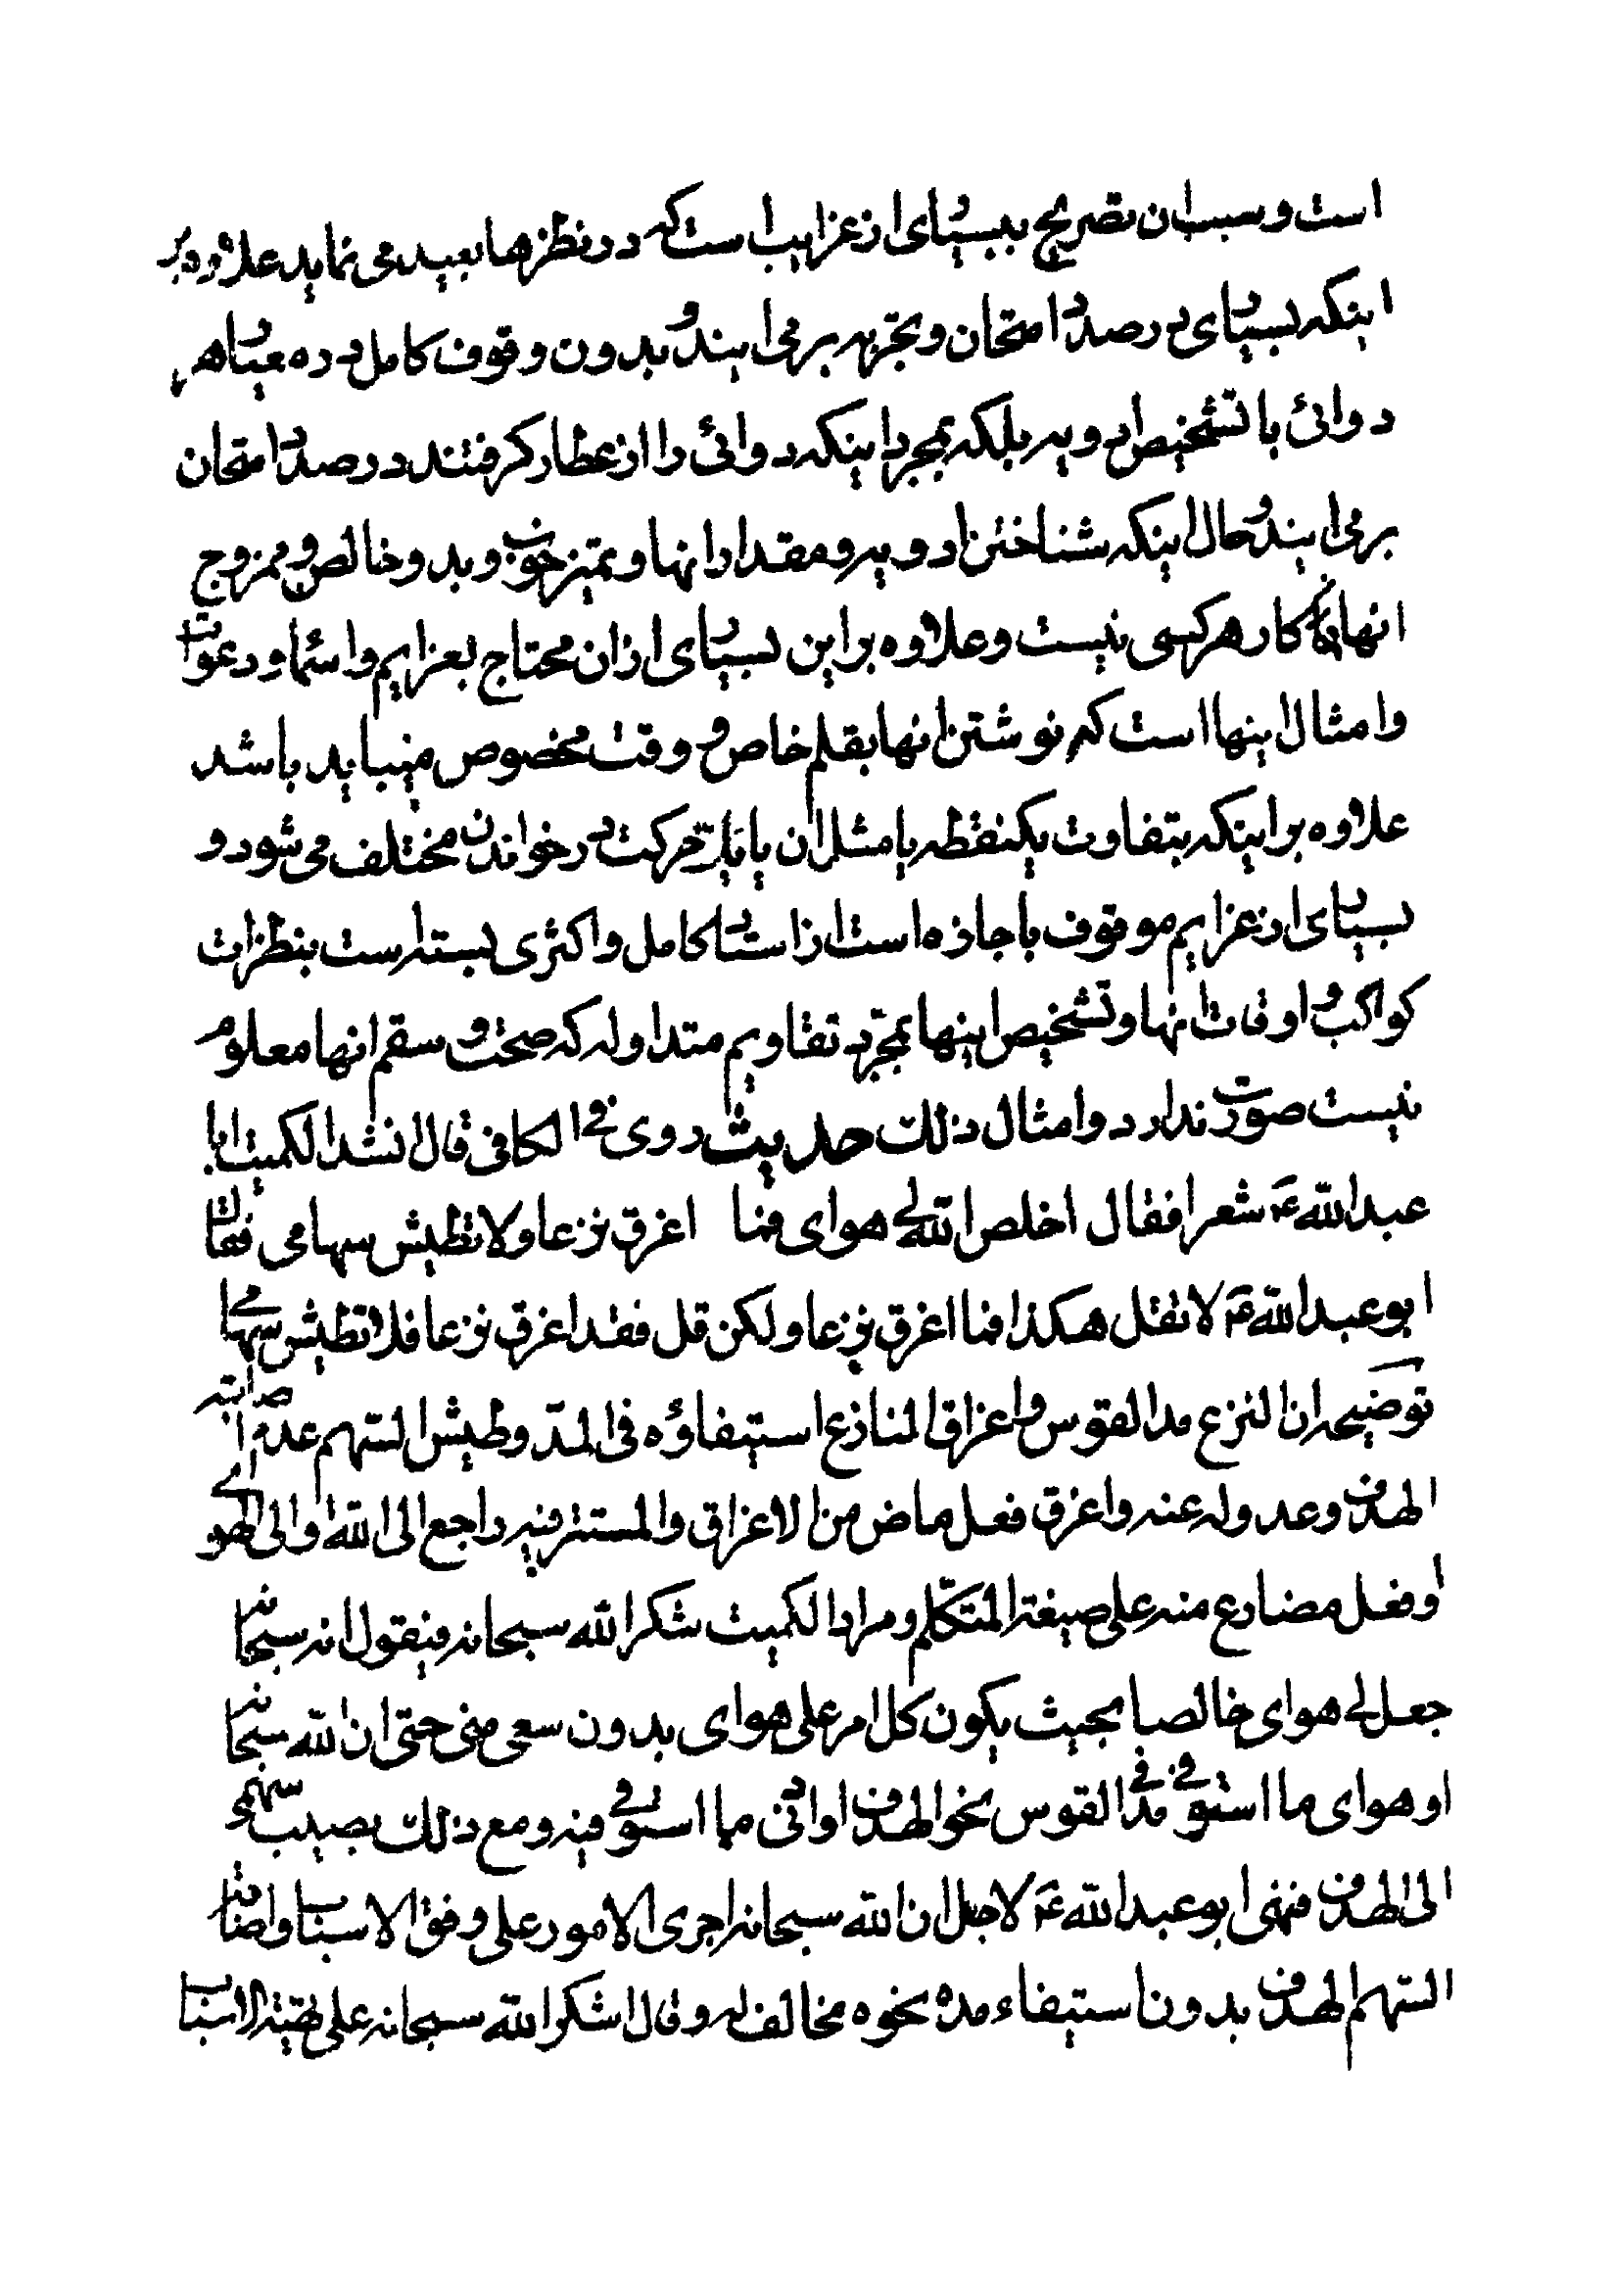 است و سبب ان تصریح ببسیاری از غرایب است که در نظرها بعید می نماید علاوه بر
اینکه بسیاری در صدد امتحان و تجربه برمی ایند و بدون وقوف کامل در ده عیار هر
دوائی با تشخیص ادویه بلکه بمجرد اینکه دوائی را از عطار گرفتند در صدد امتحان
برمی ایند و حال اینکه شناختن ادویه و مقدار انها و تمیز خوب و بد و خالص و ممزوج
انها کار هر کسی نیست و علاوه بر این بسیاری از ان محتاج بعزایم و اسماء و دعوات
و امثال اینها است که نوشتن انها بقلم خاص و وقت مخصوص میباید باشد
علاوه بر اینکه بتفاوت یکنقطه یا مثل ان یا یک حرکت در خواندن مختلف می شود و
بسیاری از عزایم موقوف باجازه است از استاد کامل و اکثری بسته است بنظرات
کواکب و اوقات انها و تشخیص اینها بمجرد تقاویم متداوله که صحت و سقم انها معلوم
نیست صورت ندارد و امثال ذلک حدیث روی فی الکافی قال انشد الکمیت ابا
عبد الله ع شعرا فقال اخلص الله لی هوای فما اغرق نزعا ولا تطیش سهامی فقال
ابو عبد الله ع لا تقل هکذا فما اغرق نزعا ولکن قل فقد اغرق نزعا فلا تطیش سهامی
توضیحه ان النزع مد القوس و اغراق النازع استیفاؤه فی المد و طیش السهم عدم اصابته
الهدف و عدوله عنه و اغرق فعل ماض من الاغراق والمستتر فیه راجع الی الله او الی الهوی
او فعل مضارع منه علی صیغة المتکلم و مراد الکمیت شکر الله سبحانه فیقول انه سبحانه
جعل لی هوای خالصا بحیث یکون کل امر علی هوای بدون سعی منی حتی ان الله سبحانه
او هوای ما استوفی فی مد القوس نحو الهدف او انی ما استوفی فیه و مع ذلک یصیب سهمی
الی الهدف فنهی ابو عبد الله ع لاجل ان الله سبحانه اجری الامور علی وفق الاسباب و اصابة
السهم الهدف بدون استیفاء مده نحوه مخالف له و قال اشکر الله سبحانه علی تهیئة الاسباب